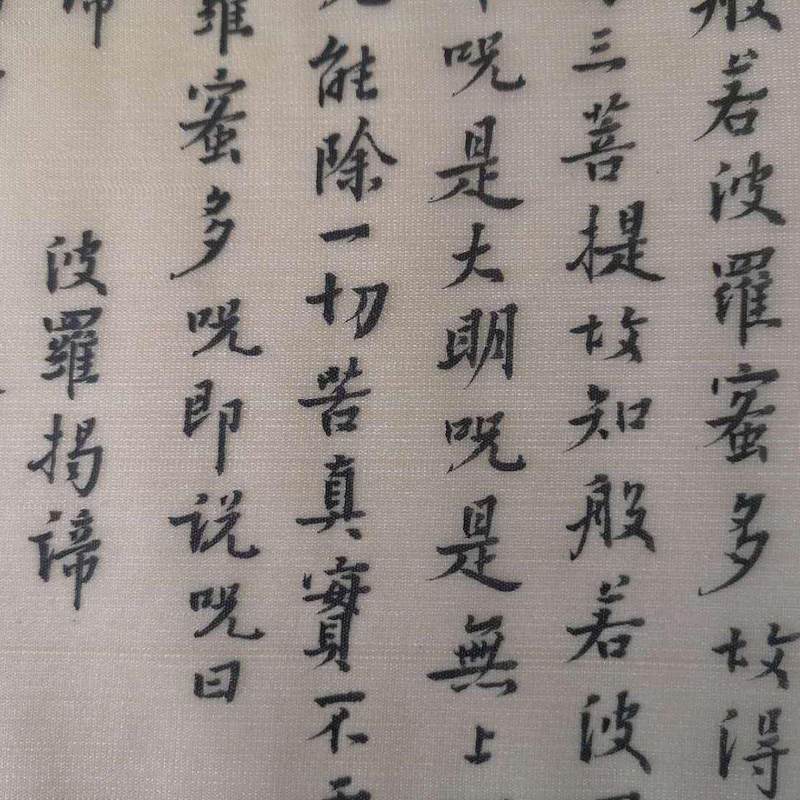 般若波羅蜜多故得
三菩提故知般若波
呪是大明呪是無上
能除一切苦真實不
羅蜜多呪即说呪曰
諦 波羅揭諦